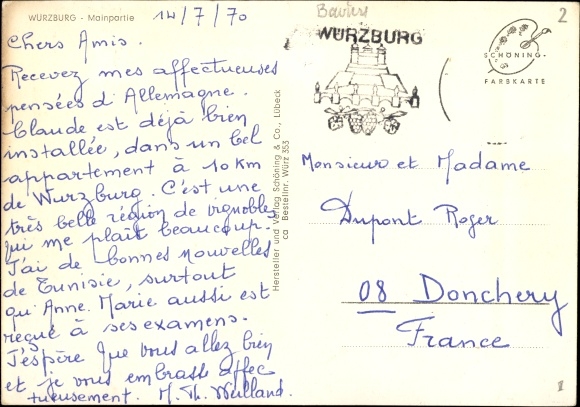 WÜRZBURG - Mainpartie
14/7/70
Chers Amis.
Recevez mes affectueuses
pensées d'Allemagne.
Claude est déjà bien
installée, dans un bel
appartement à 10 Km
de Wurzburg. C'est une
très belle région de vignobles
qui me plaît beaucoup.
J'ai de bonnes nouvelles
de Tunisie, surtout
qu'Anne. Marie aussi est
reçue à ses examens.
J'espère que vous allez bien
et je vous embrasse affec
tueusement. M. Th. Weilland.
Hersteller und Verlag Schöning & Co., Lübeck
ca Bestellnr. Würz 353
Bavière
WÜRZBURG
2
SCHÖNING
FARBKARTE
Monsieur et Madame
Dupont Roger
08 Donchery
France
1